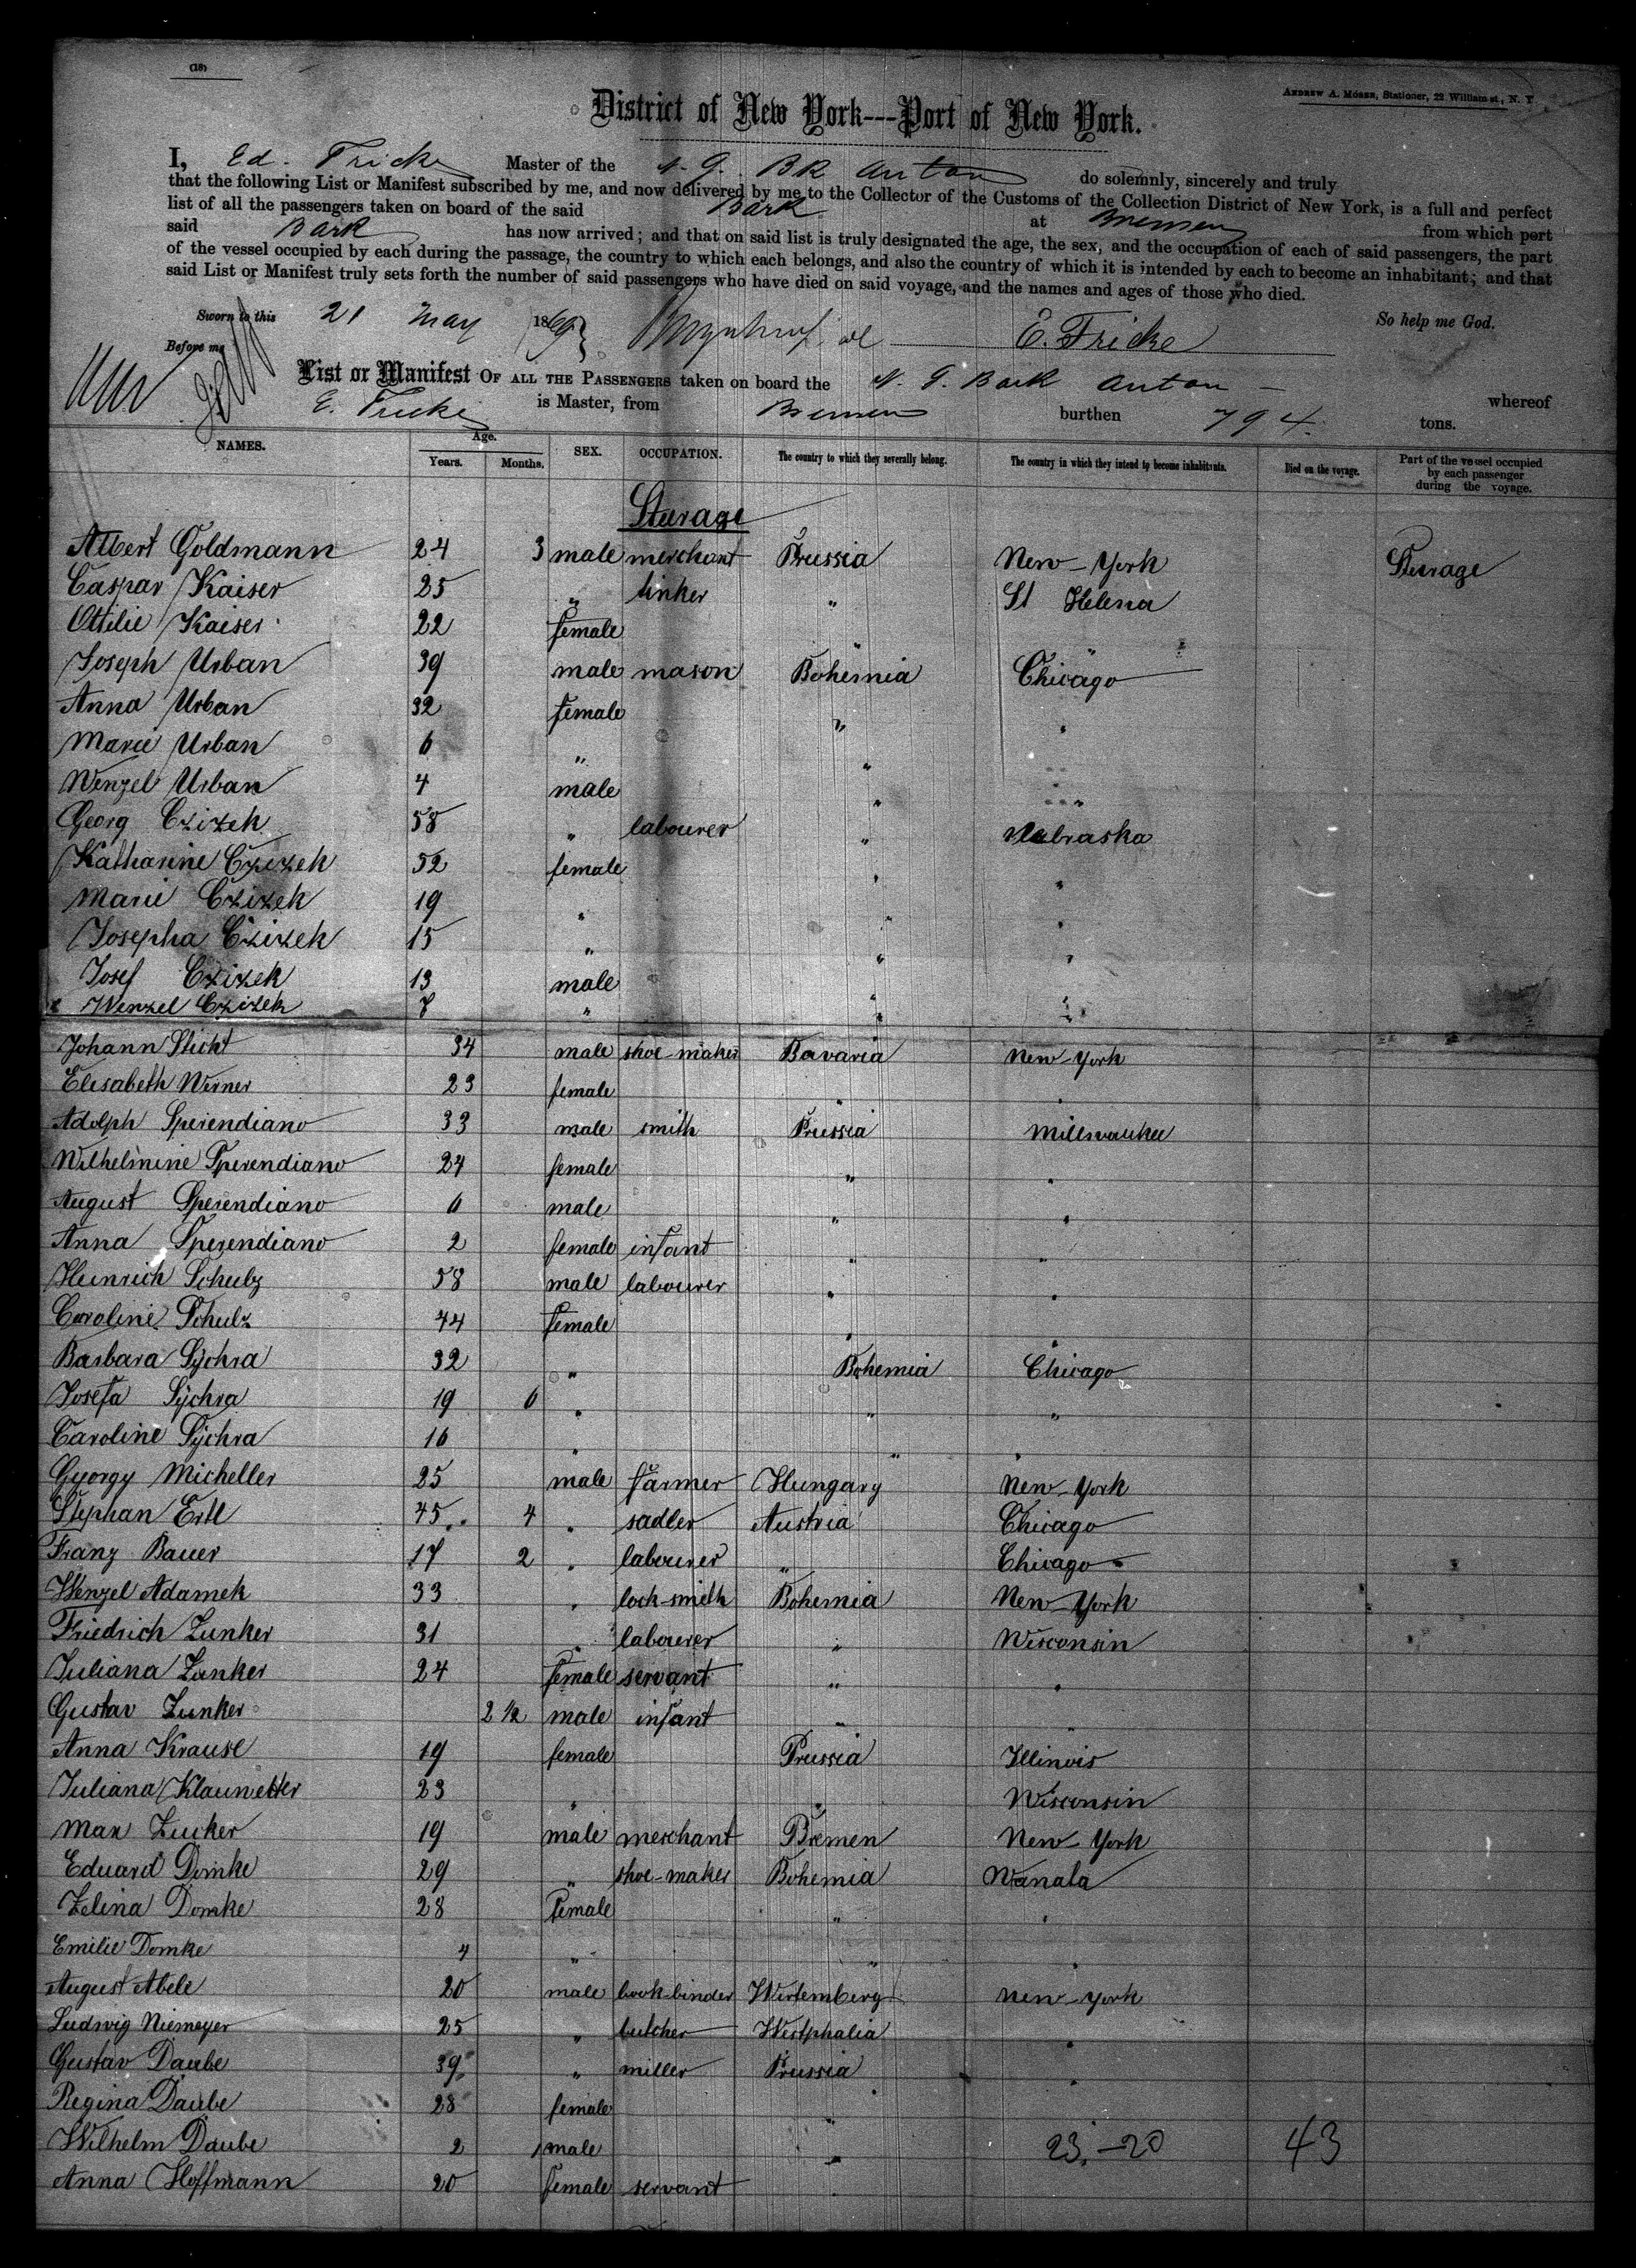 (18)
ANDREW A. MOSER, Stationer, 22 William st., N. Y.
District of New York---Port of New York.
I, Ed. Fricke Master of the N. G. BK Anton do solemnly, sincerely and truly
that the following List or Manifest subscribed by me, and now delivered by me to the Collector of the Customs of the Collection District of New York, is a full and perfect
list of all the passengers taken on board of the said Bark at Bremen from which port
said Bark has now arrived; and that on said list is truly designated the age, the sex, and the occupation of each of said passengers, the part
of the vessel occupied by each during the passage, the country to which each belongs, and also the country of which it is intended by each to become an inhabitant; and that
said List or Manifest truly sets forth the number of said passengers who have died on said voyage, and the names and ages of those who died.
Sworn to this 21 May 1869 E. Fricke So help me God.
Before me
List or Manifest OF ALL THE PASSENGERS taken on board the N. G. Bark Anton whereof
E. Fricke is Master, from Bremen burthen 794. tons.
NAMES. Age. Years. Months. SEX. OCCUPATION. The country to which they severally belong. The country in which they intend to become inhabitants. Died on the voyage. Part of the vessel occupied by each passenger during the voyage.
Sturage
Albert Goldmann 24 3 male merchant Prussia New-York Sturage
Caspar Kaiser 25 " tinker " St Helena
Ottilie Kaiser 22 female "
Joseph Urban 39 male mason Bohemia Chicago
Anna Urban 32 female " "
Marie Urban 6 " " "
Wenzel Urban 4 male " "
Georg Czizek 58 " labourer " Nebraska
Katharine Czizek 52 female " "
Marie Czizek 19 " " "
Josepha Czizek 15 " " "
Josef Czizek 13 male " "
Wenzel Czizek 7 " " "
Johann Sticht 34 male shoe-maker Bavaria New-York
Elisabeth Werner 23 female " "
Adolph Sperendiano 33 male smith Prussia Millwaukee
Wilhelmine Sperendiano 24 female " "
August Sperendiano 6 male " "
Anna Sperendiano 2 female infant " "
Heinrich Schulz 58 male labourer " "
Caroline Schulz 44 female " "
Barbara Sychra 32 " Bohemia Chicago
Josefa Sychra 19 6 " " "
Caroline Sychra 16 " " "
Gyorgy Micheller 25 male farmer Hungary New-York
Stephan Ertl 45 4 " sadler Austria Chicago
Franz Bauer 17 2 " labourer " Chicago
Wenzel Adamek 33 " lock-smith Bohemia New-York
Friedrich Zunker 31 " labourer " Wisconsin
Juliana Zunker 24 female servant " "
Gustav Zunker 2 1/2 male infant " "
Anna Krause 19 female Prussia Illinois
Juliana Klaunetter 23 " " Wisconsin
Max Zucker 19 male merchant Bremen New-York
Eduard Domke 29 " shoe-maker Bohemia Wanala
Zelina Domke 28 female " "
Emilie Domke 4 " " "
August Abele 20 male book-binder Wirtemberg New-York
Ludwig Niemeyer 25 " butcher Westphalia "
Gustav Daube 39 " miller Prussia "
Regina Daube 28 female "
Wilhelm Daube 2 male " 23.-20 43
Anna Hoffmann 20 female servant "